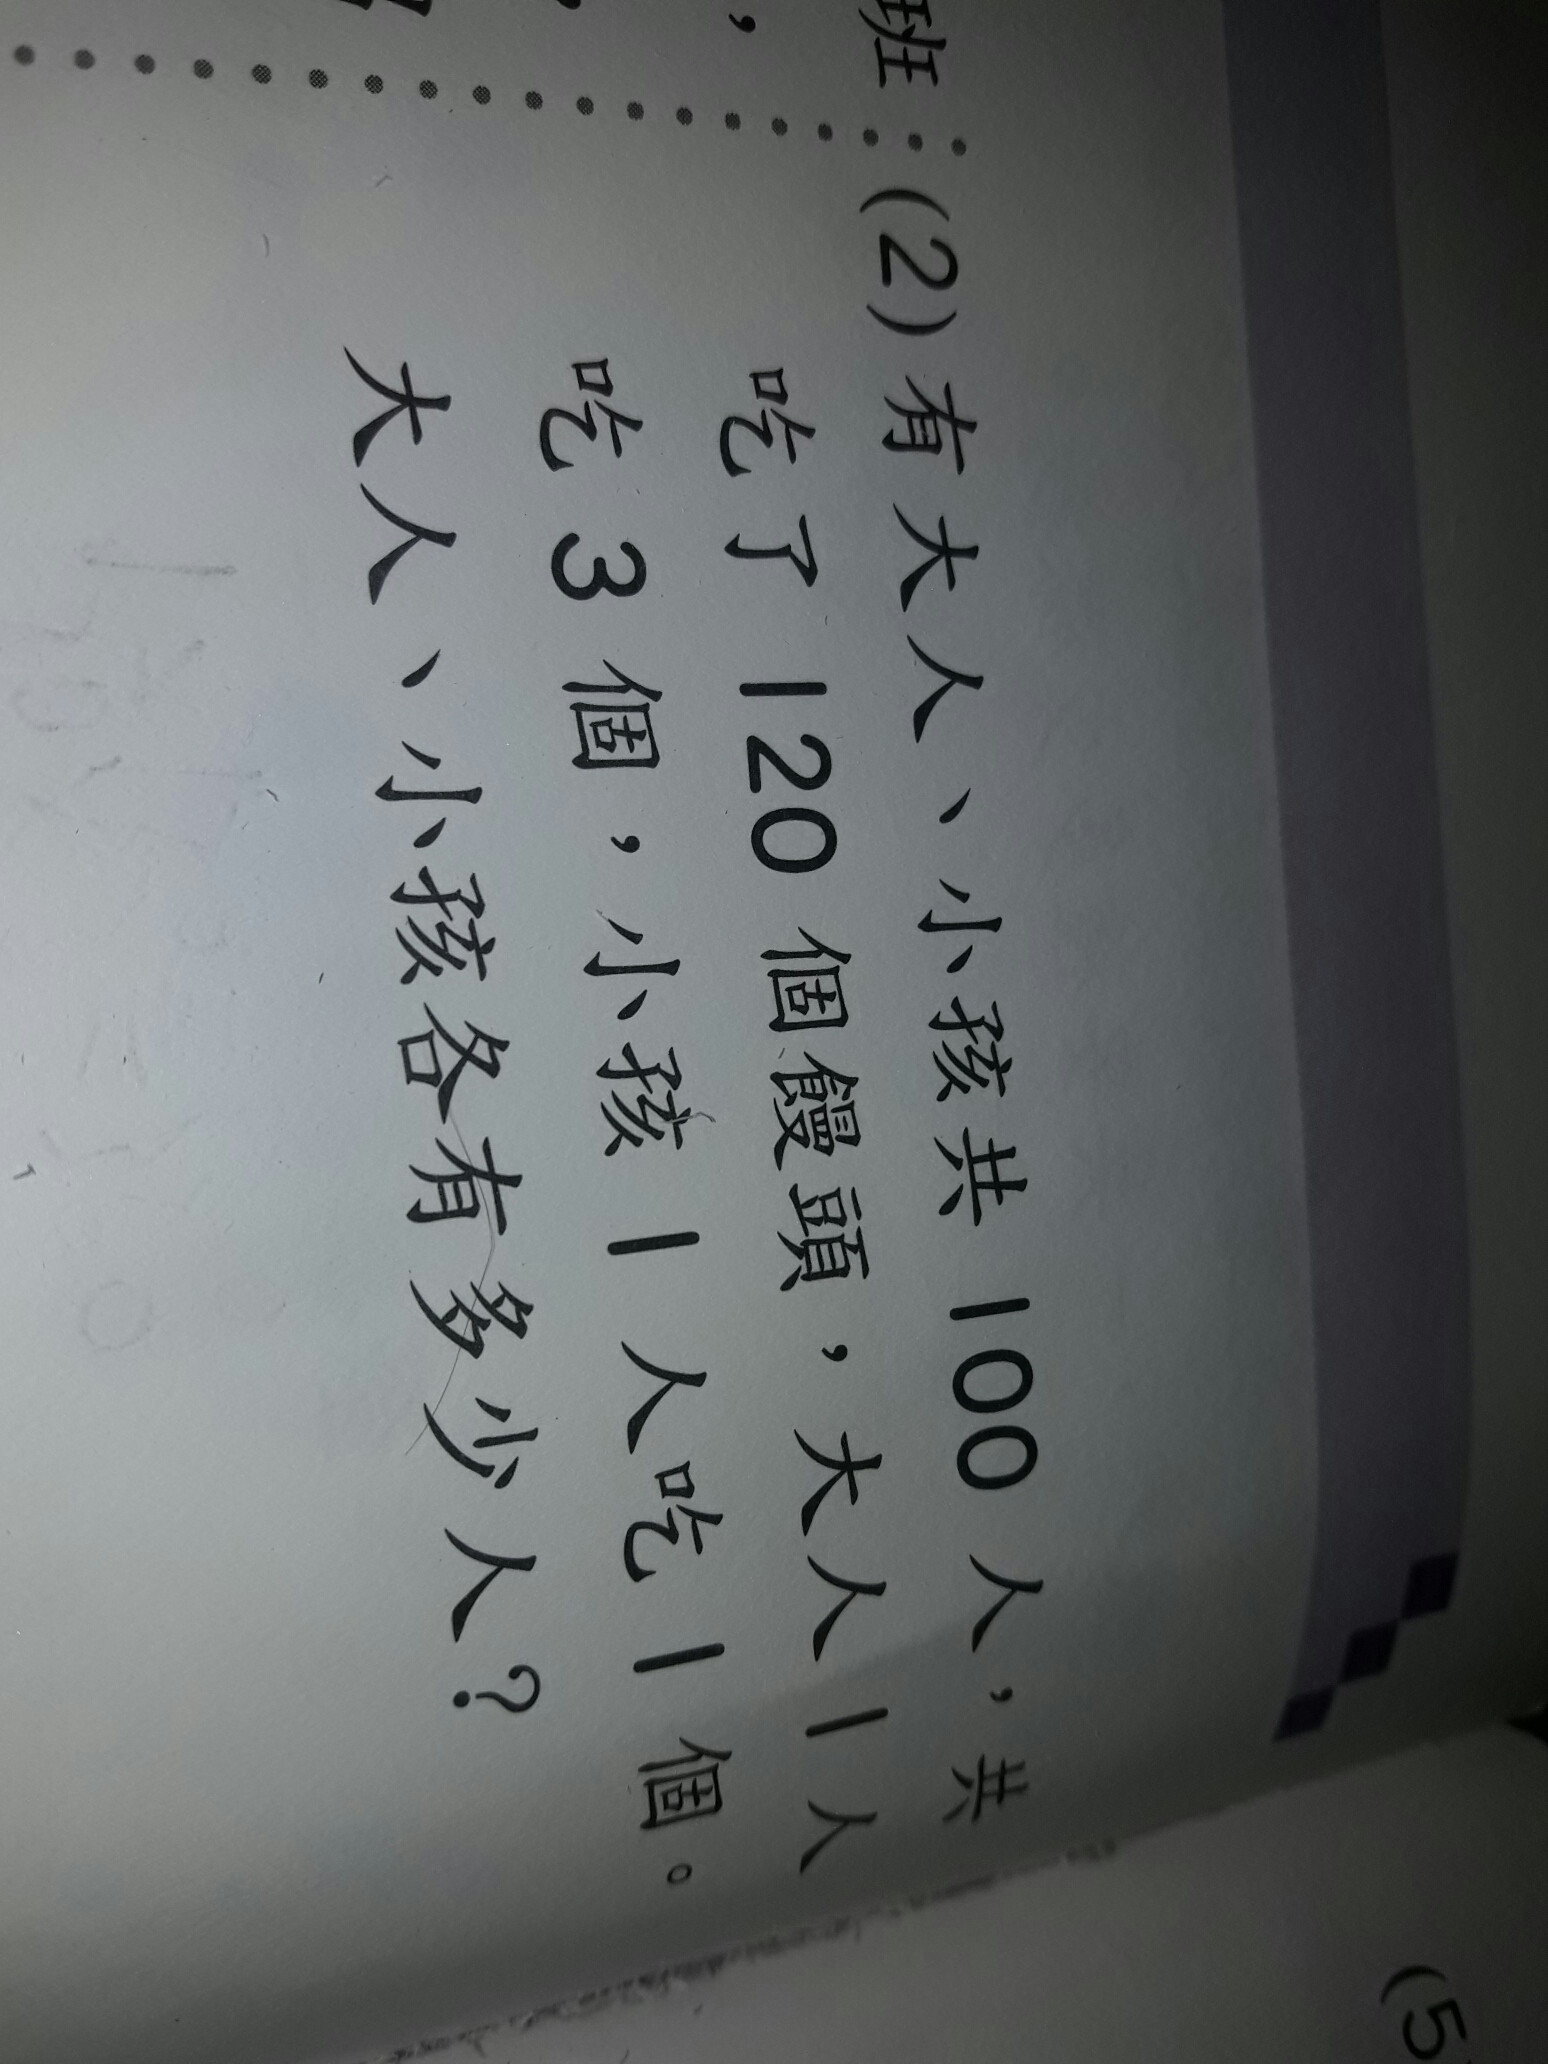 班
(2)有大人、小孩共 100 人，共
吃了 120 個饅頭，大人 1 人
吃 3 個，小孩 1 人吃 1 個。
大人、小孩各有多少人？
(5